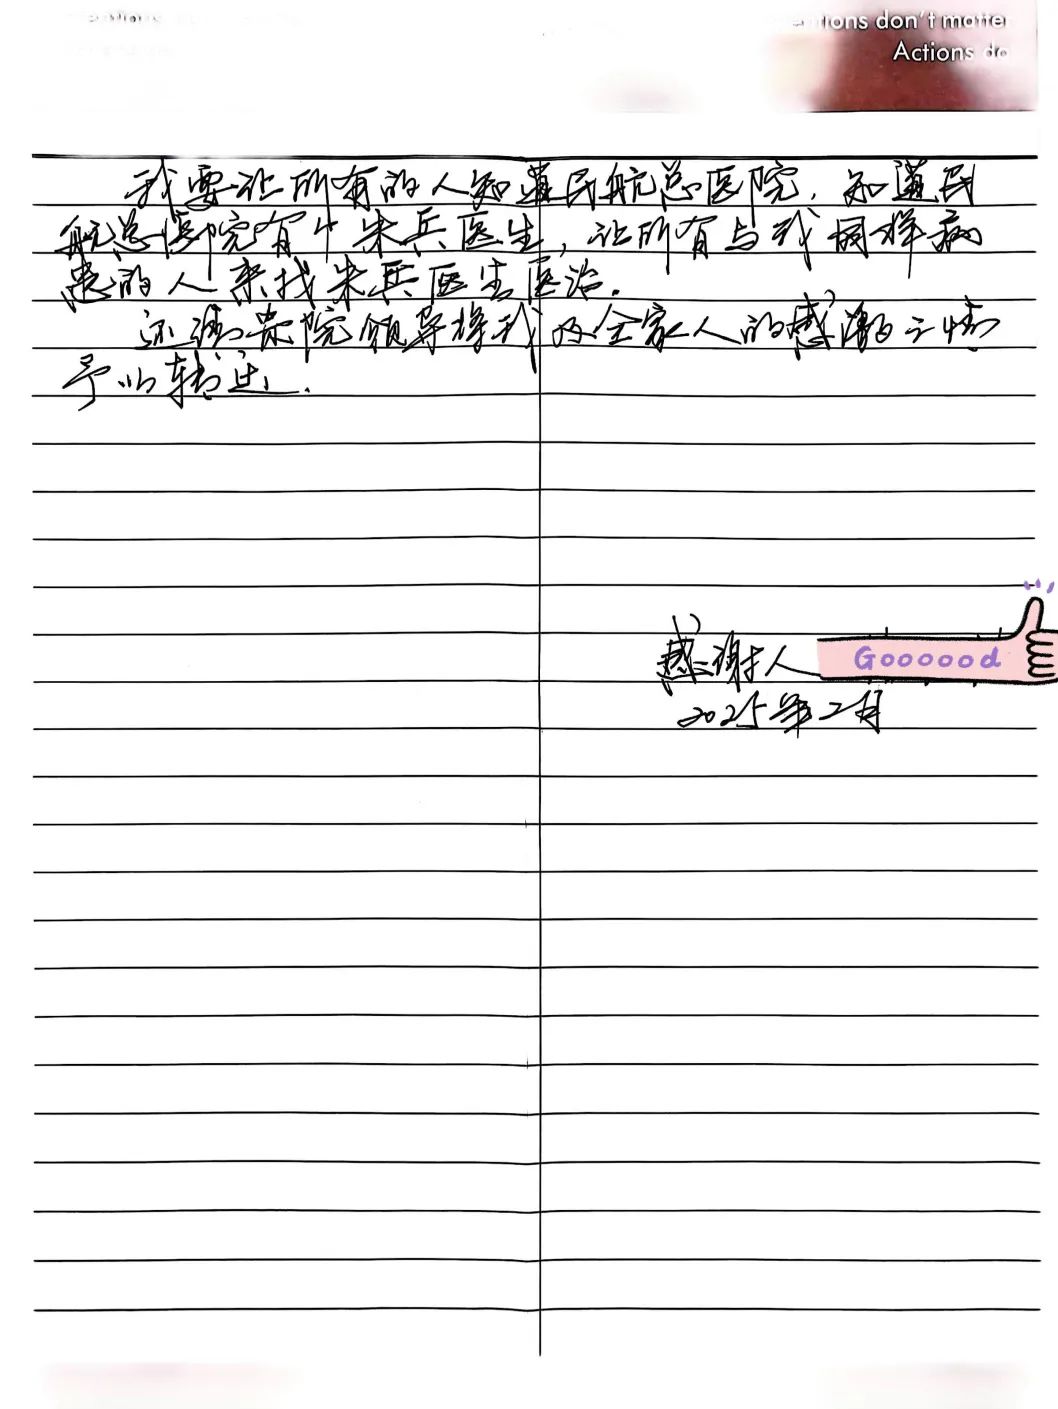 tions don't matter
Actions do
我要让所有的人知道民航总医院，知道民
航总医院有个朱兵医生，让所有与我同样病
患的人来找朱兵医生医治．
还请贵院领导将我及全家人的感激之情
予以转达．
感谢人
Goooood
2025年2月